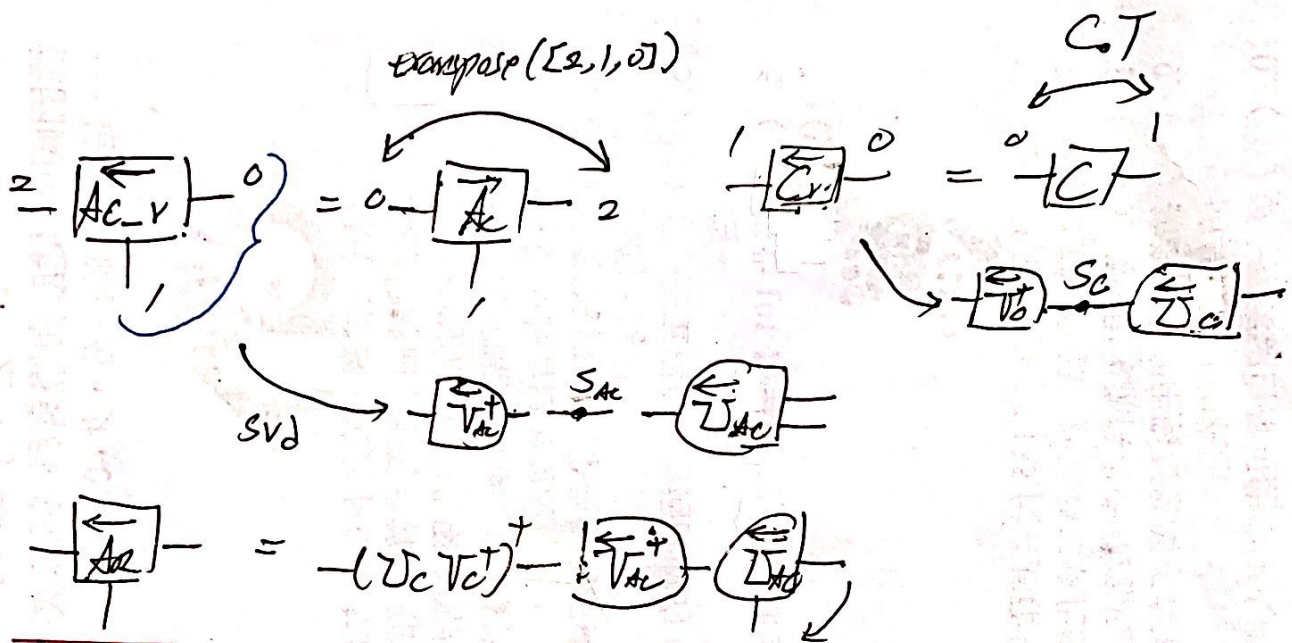 transpose([2,1,0])
C.T
2 Ac_r 0 = 0 Ac 2
1 1
1 Cr 0 = 0 C 1
Vc† Sc Uc
svd VAc† SAc UAc
AR = (Uc Vc†)† VAc† UAc